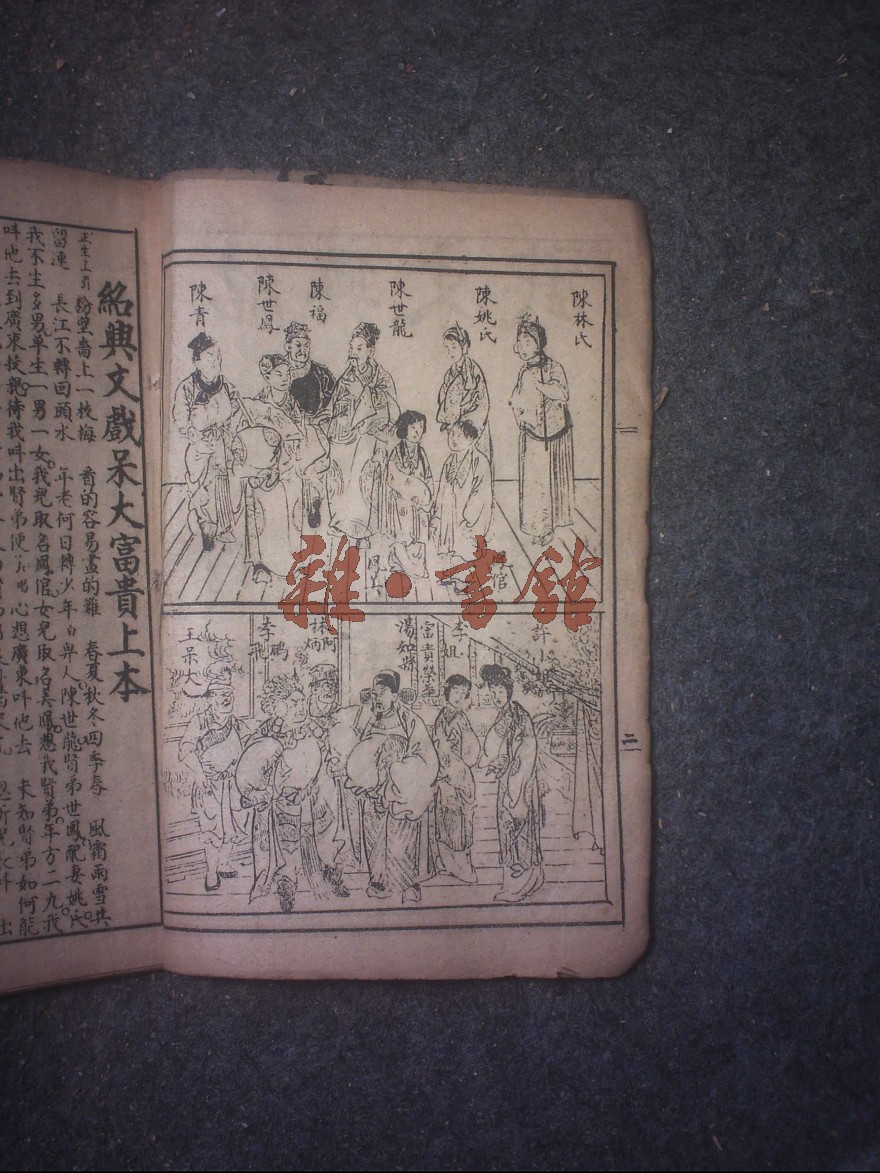 陳林氏
陳姚氏
陳世龍
陳福
陳世鳳
陳青
倌
一
李小姐
富貴榮華
湯知縣
林阿炳
李鵬飛
王呆大
二
雜·書館
紹興文戲呆大富貴上本
正生上引 粉壁墻上一枝梅 看的容易畫的難 春夏秋冬四季春 風霜雨雪共
留連 長江不轉回頭水 年老何日轉少年 白 卑人陳世龍賢弟世鳳配妻姚氏。
我不生多男单生一男一女。我兒取名鳳倌女兒取名美鳳想我賢弟。年方二九。我
呌他去到廣東投親待我呌出賢弟便 心想廣東呌他去 未知賢弟如何能